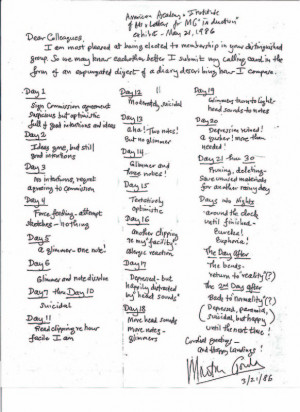 American Academy & Institute
of Arts & Letters for MG's induction
exhibit - May 21, 1986
Dear Colleagues,
I am most pleased at being elected to membership in your distinguished
group. So we may know each other better I submit my calling card in the
form of an expurgated digest of a diary describing how I compose.
Day 1
Sign Commission agreement
suspicious but optimistic
full of good intentions and ideas
Day 2
Ideas gone, but still
good intentions
Day 3
No intentions, regret
agreeing to commission
Day 4
Force feeding - attempt
sketches - nothing
Day 5
A glimmer - one note!
Day 6
Glimmer and note dissolve
Day 7 thru Day 10
Suicidal
Day 11
Read clipping re how
facile I am
Day 12
Moderately suicidal
Day 13
Aha! Two notes!
But no glimmer
Day 14
Glimmer and
three notes!
Day 15
Tentatively
optimistic
Day 16
Another clipping
re "my facility"
Allergic reaction
Day 17
Depressed - but
happily distracted
by head sounds
Day 18
More head sounds
more notes -
glimmers
Day 19
Glimmers turn to light
head sounds to notes
Day 20
Depression revived!
a gusher! more than
needed!
Day 21 thru 30
Pruning, deleting -
Save unused materials
for another rainy day
Days into nights
around the clock
until finished -
Eureka!
Euphoria!
The Day After
The bends -
"return to reality (?)
The 2nd Day After
Back to normality (?)
(Depressed, paranoid,
suicidal, but happy
until the next time!
Cordial greetings -
and Happy Landings!
Morton Gould
3/21/86